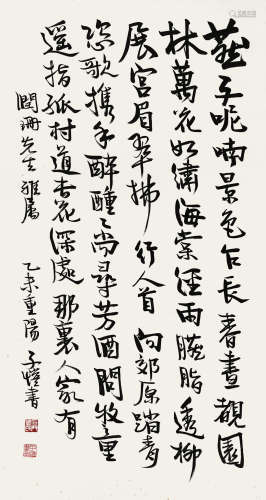 燕子呢喃景色乍長春晝覩園
林萬花如繡海棠經雨臙脂透柳
展宮眉翠拂行人首 向郊原踏青
恣歌携手醉醺〻尚尋芳酒問牧童
遥指孤村道杏花深處那裏人家有
闓珊先生雅屬 乙未重陽 子愷書